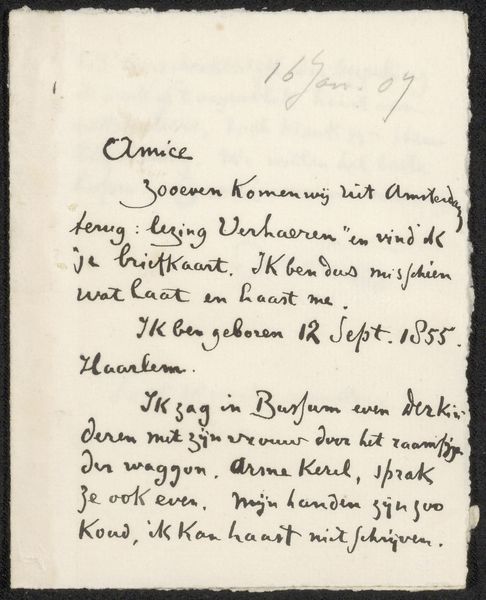 16 Jan. 07
Amice
Zooeven komen wij uit Amsterdam
terug: lezing Verhaeren" en vind ik
je briefkaart. Ik ben dus misschien
wat laat en haast me.
Ik ben geboren 12 Sept. 1855.
Haarlem.
Ik zag in Bussum even Derkin
deren met zijn vrouw door het raampje
der waggon. Arme Kerel, sprak
ze ook even. Mijn handen zijn zoo
koud, ik kan haast niet schrijven.